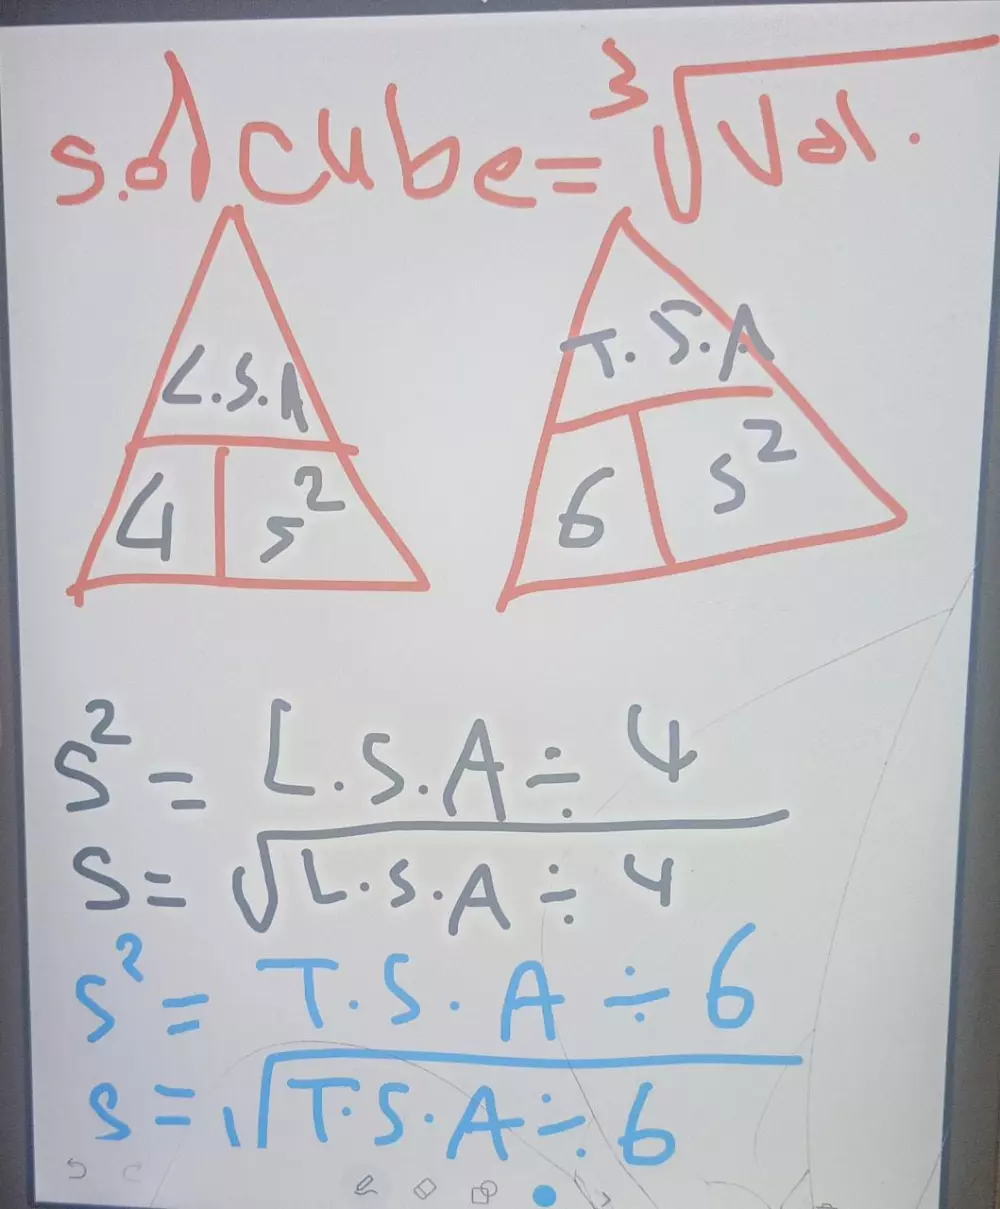 s.of cube = ³√Vol.
L.S.A
4 s²
T.S.A
6 s²
s² = L.S.A ÷ 4
s = √L.S.A ÷ 4
s² = T.S.A ÷ 6
s = √T.S.A ÷ 6